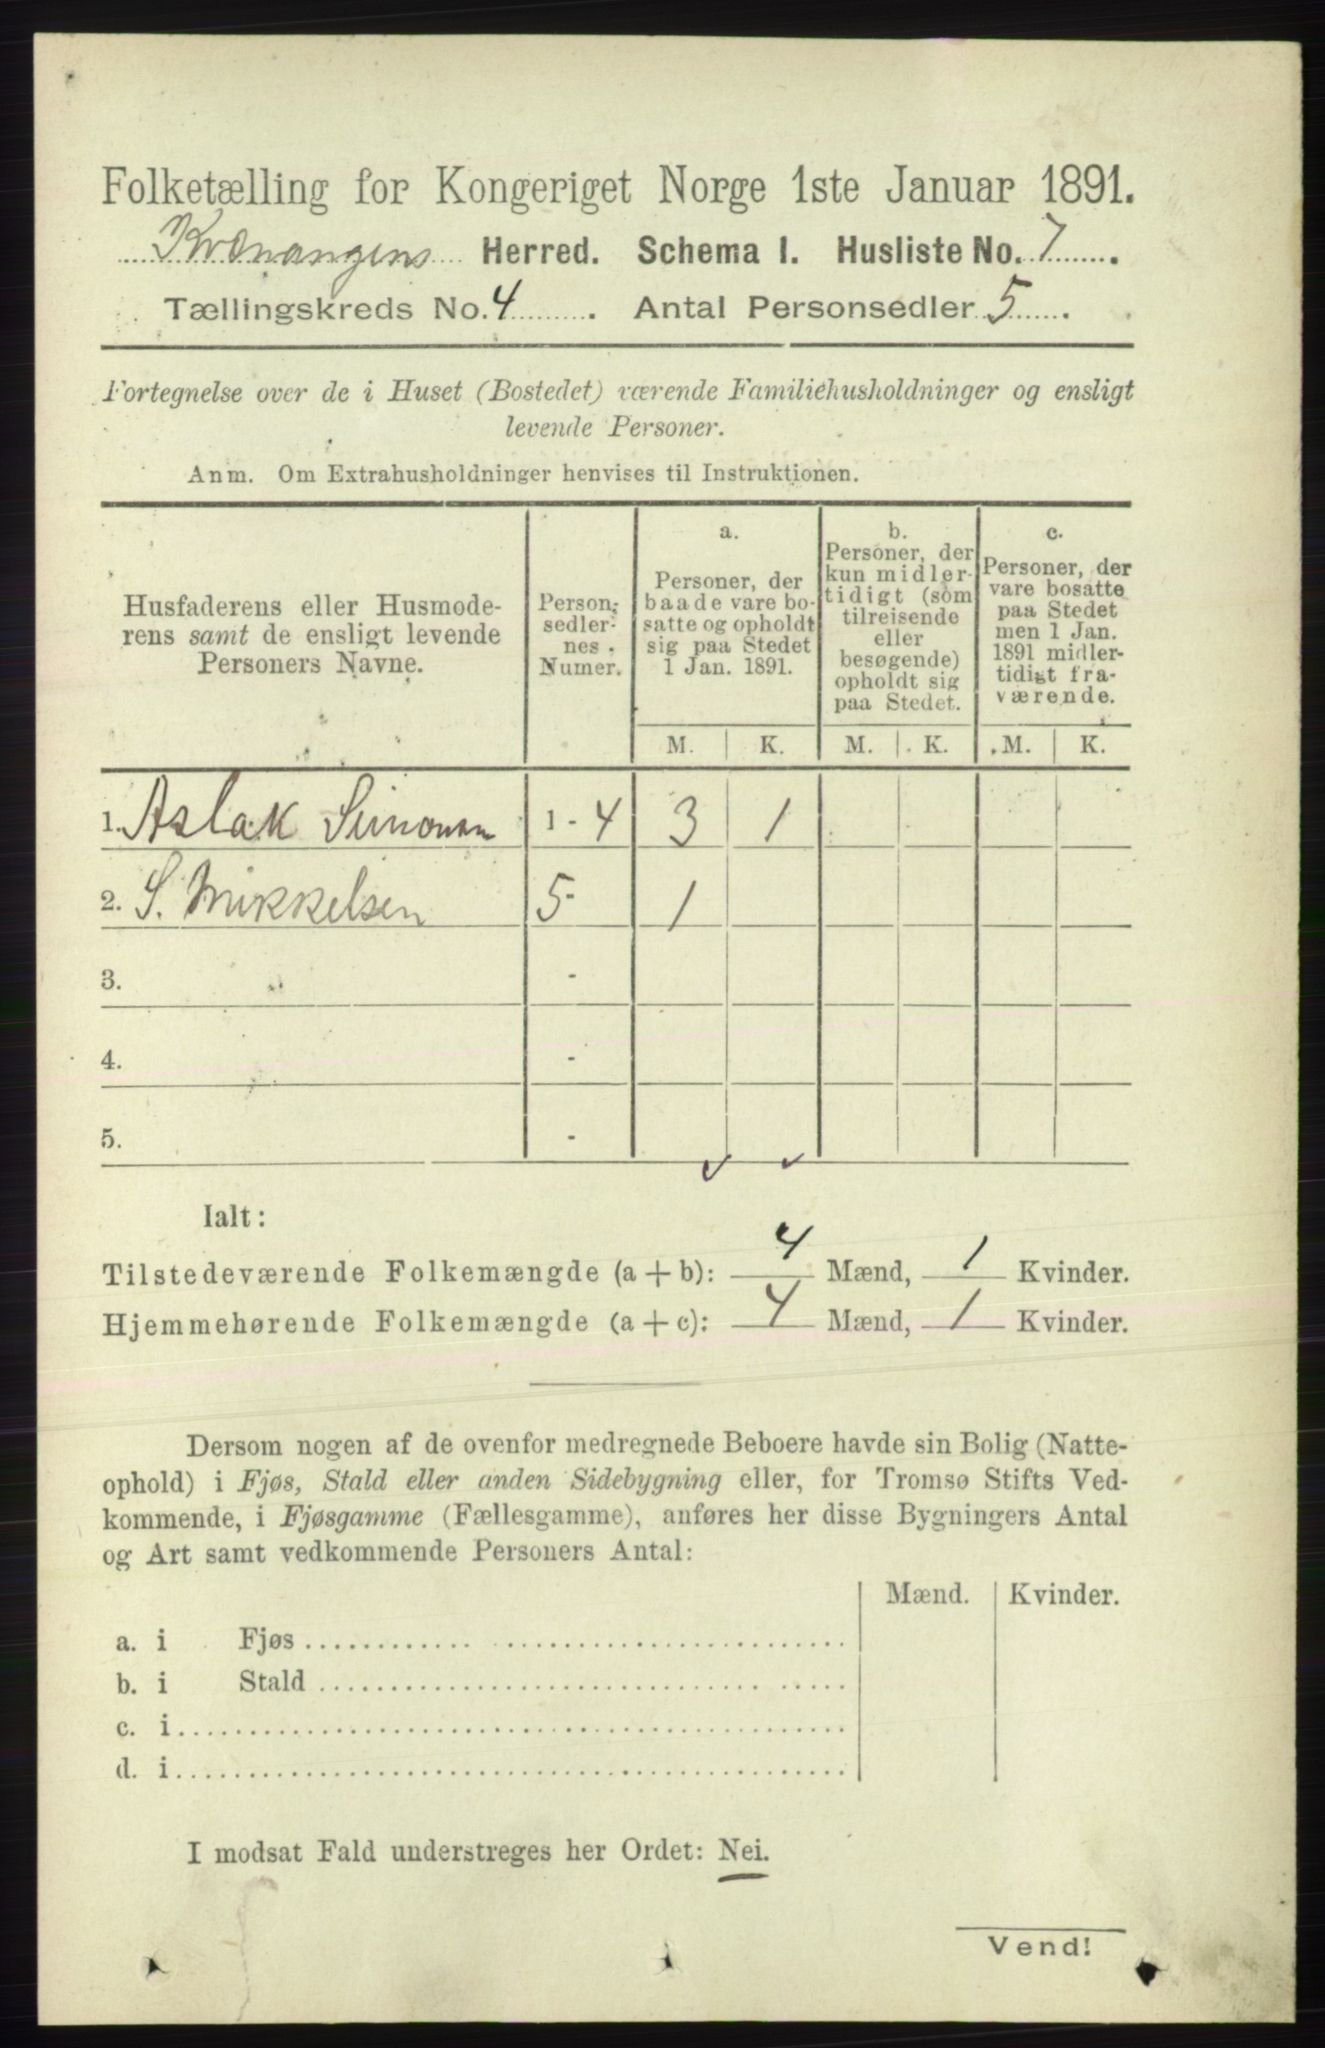 Folketælling for Kongeriget Norge 1ste Januar 1891.
Kvænangens Herred. Schema I. Husliste No. 7.
Tællingskreds No. 4. Antal Personsedler 5.
Fortegnelse over de i Huset (Bostedet) værende Familiehusholdninger og ensligt
levende Personer.
Anm. Om Extrahusholdninger henvises til Instruktionen.
Husfaderens eller Husmode-
rens samt de ensligt levende
Personers Navne.
Person-
sedler-
nes
Numer.
a.
Personer, der
baade vare bo-
satte og opholdt
sig paa Stedet
1 Jan. 1891.
b.
Personer, der
kun midler-
tidigt (som
tilreisende
eller
besøgende)
opholdt sig
paa Stedet.
c.
Personer, der
vare bosatte
paa Stedet
men 1 Jan.
1891 midler-
tidigt fra-
værende.
M. K. M. K. M. K.
1. Aslak Simonsen 1 - 4 3 1
2. S. Mikkelsen 5 - 1
3. -
4. -
5. -
Ialt:
Tilstedeværende Folkemængde (a + b): 4 Mænd, 1 Kvinder.
Hjemmehørende Folkemængde (a + c): 4 Mænd, 1 Kvinder.
Dersom nogen af de ovenfor medregnede Beboere havde sin Bolig (Natte-
ophold) i Fjøs, Stald eller anden Sidebygning eller, for Tromsø Stifts Ved-
kommende, i Fjøsgamme (Fællesgamme), anføres her disse Bygningers Antal
og Art samt vedkommende Personers Antal:
Mænd. Kvinder.
a. i Fjøs
b. i Stald
c. i
d. i
I modsat Fald understreges her Ordet: Nei.
Vend!